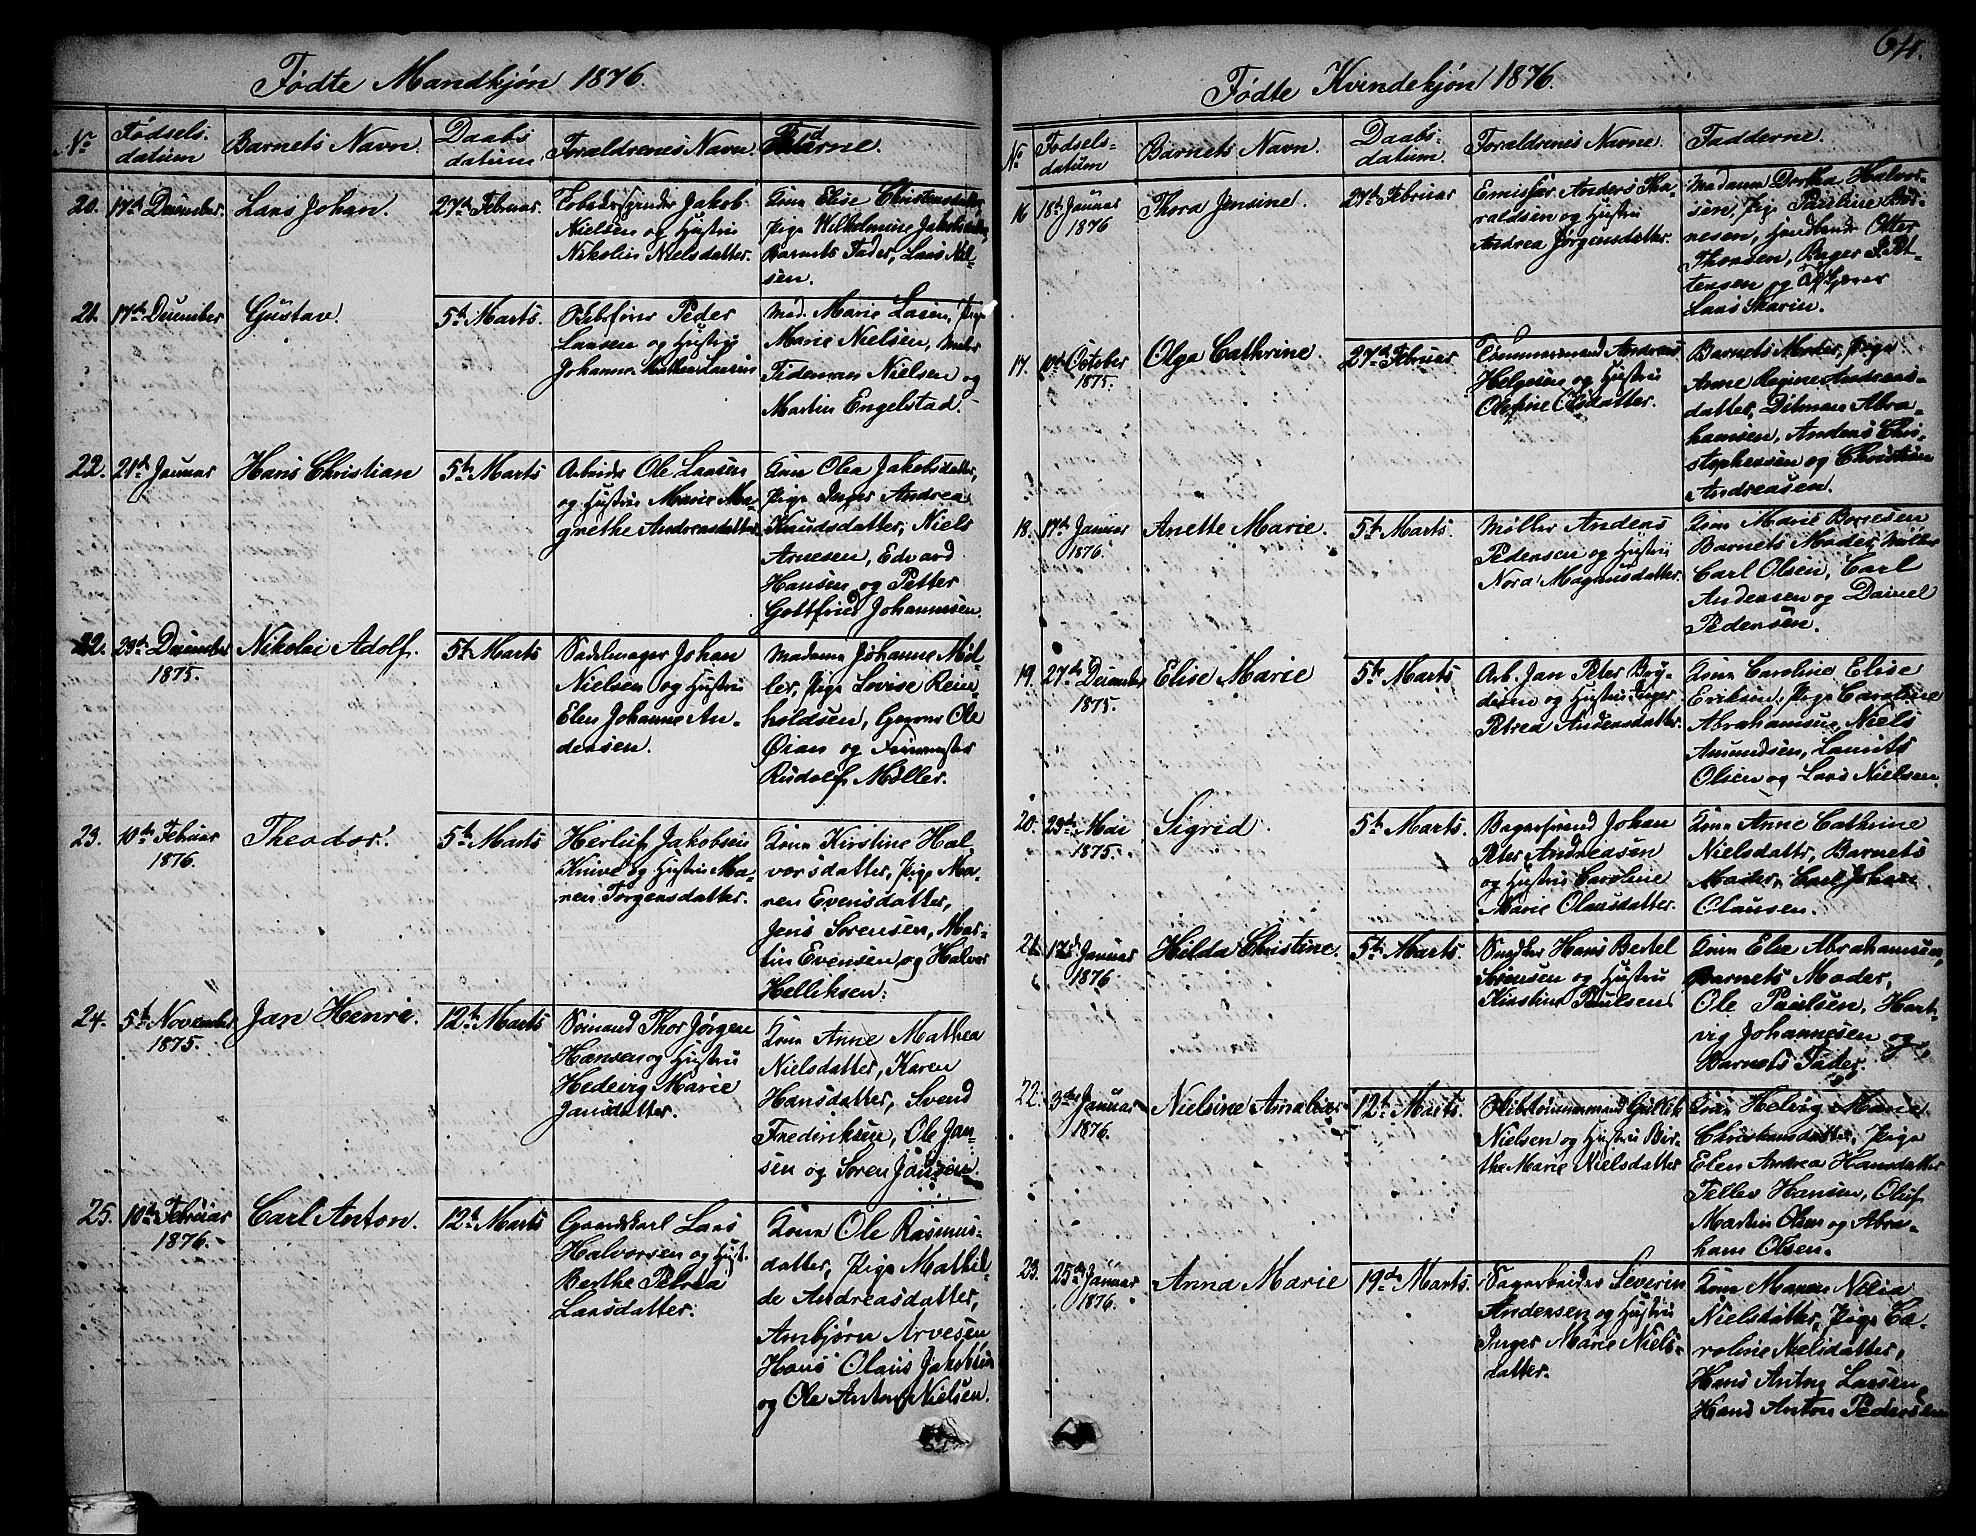 64.
Fødte Mandkjøn 1876.
No
Fødsels-
datum
Barnets Navn.
Daabs
datum.
Forældrenes Navn.
20.
17de December.
Lars Johan.
27de Februar.
Jakob
Nielsen og Hustru
Nikolin Nielsdatter.
Kone Elise Christensdatter,
Pige Wilhelmine Jakobsdatter,
Barnets Fader, Lars Niel-
sen.
21.
17de December
Gustav.
5te Marts.
Peder
Larsen og Hustru
Johanne
Mad. Marie Larsen, Pige
Marie Nielsen,
Tideman Nielsen og
Martin Engelstad.
22.
21de Januar
Hans Christian
5te Marts
Arbeider Ole Larsen
og Hustru Maren Mar-
grethe Andreasdatter.
Kone Olea Jakobsdatter,
Pige Inger Andrea
Knudsdatter, Niels
Arnesen, Edvard
Hansen og Petter
Gottfried Johannesen.
22.
23de December
1875.
Nikolai Adolf.
5te Marts
Sadelmager Johan
Nielsen og Hustru
Elen Johanne An-
dersen.
Madame Johanne Møl-
ler, Pige Lovise Rein-
holdsen, Ole
Øian og
Rudolf Møller.
23.
10de Februar
1876.
Theodor.
5te Marts
Herluf Jakobsen
Knive og Hustru Ma-
ren Torgersdatter.
Kone Kirstine Hal-
vorsdatter, Pige Ma-
ren Evensdatter,
Jens Sørensen, Mar-
tin Evensen og Halvor
Helliksen.
24.
5te November
1875.
Jan Henri.
12te Marts
Sømand Thor Jørgen
Hansen og Hustru
Hedevig Marie
Jansdatter.
Kone Anne Mathea
Nielsdatter, Karen
Hansdatter, Svend
Frederiksen, Ole Jan-
sen og Søren Jansen.
25.
10de Februar
1876.
Carl Anton.
12te Marts
Gaardskarl Lars
Halvorsen og Hust.
Berthe Petrea
Larsdatter.
Kone Ole Rasmus-
datter, Pige Mathil-
de Andreasdatter,
Anbjørn Arvesen
Hans Olaus Jakobsen
og Ole Anton Nielsen.
Fødte Kvindekjøn 1876.
No
Fødsels-
datum
Barnets Navn.
Daabs-
datum.
Forældrenes Navne.
Fadderne.
16
18de Januar
1876
Thora Jensine.
27de Februar
Anders Tha-
raldsen og Hustru
Andrea Jørgensdatter.
Madame Dorthea Halvor-
sen, Pige Pauline An-
nesen, Handlende Otter
Thorsen, Pet-
tersen og
Lars Skarin.
17.
10de October
1875.
Olga Cathrine.
27de Februar
Tømmermand Andreas
Helgesen og Hustru
Olefine Olsdatter.
Barnets Moder, Pige
Anne Regine Andreas-
datter, Ditman Abra-
hamsen, Anders Chri-
stophersen og Christian
Andreasen.
18.
17de Januar
1876.
Anette Marie.
5te Marts.
Møller Anders
Pedersen og Hustru
Nora Magnusdatter.
Kone Marie Borresen
Barnets Moder, Møller
Carl Olsen, Carl
Andersen og Daniel
Pedersen.
19.
27de December
1875.
Elise Marie
5te Marts
Arb. Jan Peter Bry-
desen og Hustru Inger
Petrea Andersdatter.
Kone Caroline Elise
Eriksen, Pige Caroline
Abrahamsen, Niels
Amundsen, Laurits
Olsen og Lars Nielsen.
20.
23de Mai
1875.
Sigrid.
5te Marts.
Bagersvend Johan
Peter Andreasen
og Hustru Caroline
Marie Olausdatter.
Kone Anne Cathrine
Nielsdatter, Barnets
Moder, Carl Johan
Olausen.
21.
17de Januar
1876
Hilda Christine.
5te Marts.
Snedker Hans Bertel
Sørensen og Hustru
Kirstine Paulsen
Kone Else Abrahamsen,
Barnets Moder,
Ole Paulsen, Hart-
vig Johannesen og
Barnets Fader.
22.
3de Januar
1876.
Nielsine Amalie
12te Marts.
Skibstømmermand Gullik
Nielsen og Hustru Bir-
the Marie Nielsdatter
Kone Helvig Marie
Christensdatter, Pige
Elen Andrea Hansdatter
Tellev Hansen, Oluf
Martin Olsen og Abra-
ham Olsen.
23.
25de Januar
1876.
Anna Marie
19de Marts.
Sagarbeider Severin
Andersen og Hustru
Inger Marie Niels-
datter.
Kone Maren Nilia
Nielsdatter, Pige Ca-
roline Nielsdatter,
Hans Anton Larsen
Hans Anton Pedersen